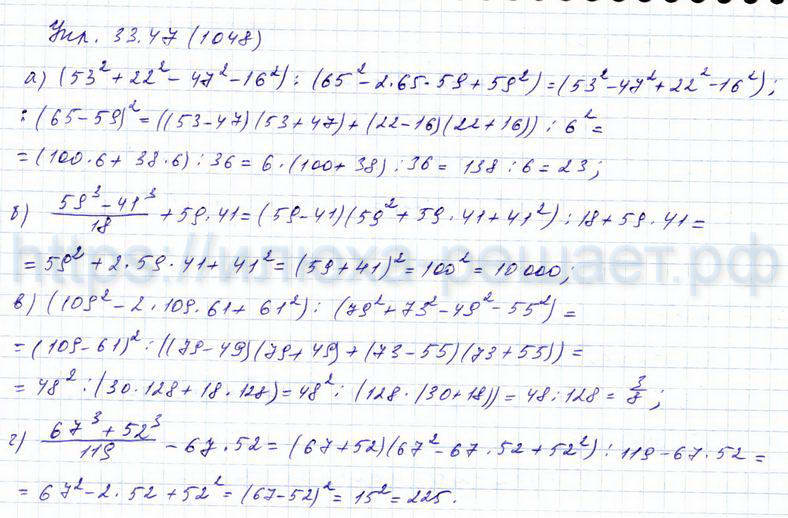 Упр. 33.47 (1048)
а) (53² + 22² - 47² - 16²) : (65² - 2·65·59 + 59²) = (53² - 47² + 22² - 16²) :
: (65-59)² = ((53-47)(53+47)+(22-16)(22+16)) : 6² =
= (100·6 + 38·6) : 36 = 6·(100+38) : 36 = 138 : 6 = 23;
б) (59³ - 41³)/18 + 59·41 = (59-41)(59² + 59·41 + 41²) : 18 + 59·41 =
= 59² + 2·59·41 + 41² = (59+41)² = 100² = 10000;
https://илюха-решает.рф
в) (109² - 2·109·61 + 61²) : (79² + 73² - 49² - 55²) =
= (109-61)² : ((79-49)(79+49)+(73-55)(73+55)) =
= 48² : (30·128 + 18·128) = 48² : (128·(30+18)) = 48 : 128 = 3/8;
г) (67³ + 52³)/119 - 67·52 = (67+52)(67² - 67·52 + 52²) : 119 - 67·52 =
= 67² - 2·52 + 52² = (67-52)² = 15² = 225.